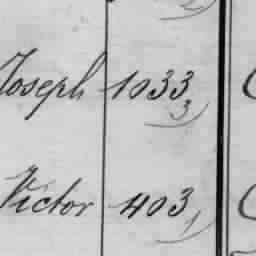 Joseph 1033
3)
Victor 403
1)